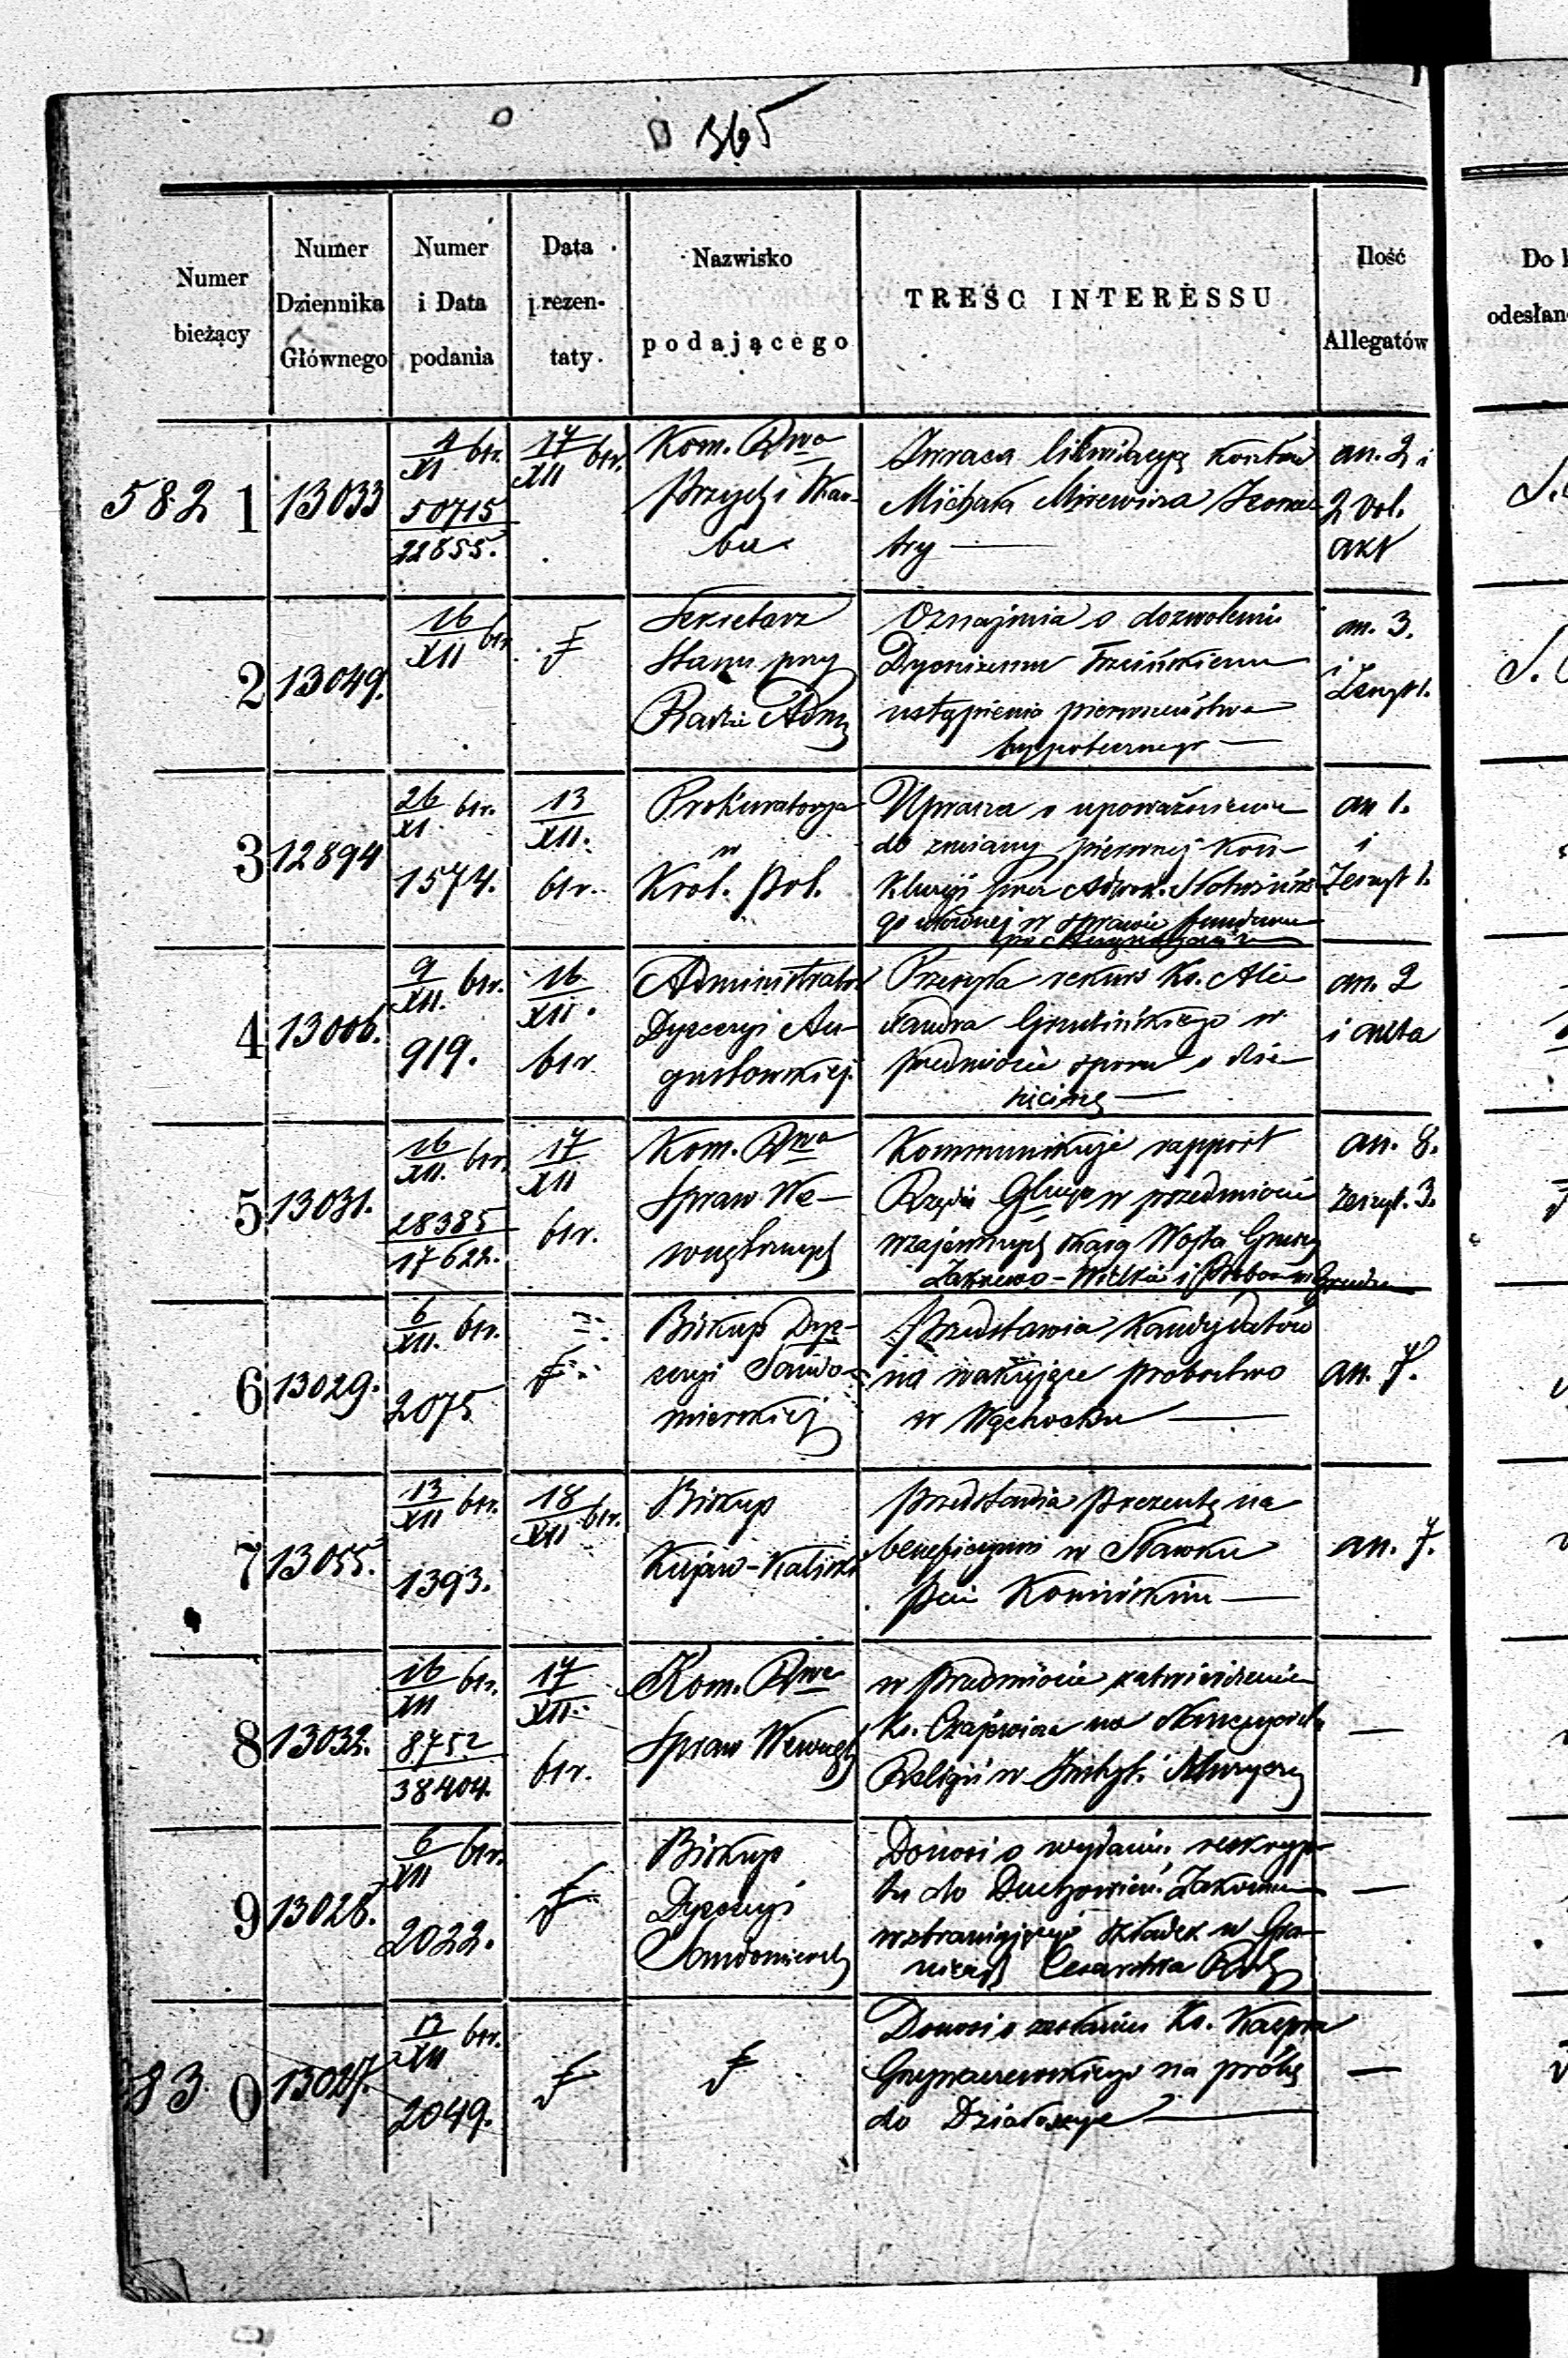 365
Numer bieżący
Numer Dziennika Głównego
Numer i Data podania
Data prezentaty.
Nazwisko podającego
TREŚC INTERESSU
Ilość Allegatów
Do
odesłan
582 1
13033
4/XI btr.
50715
22855.
17/XII btr.
Kom. Rwa
Przych i Skar-
bu
Zwraca likwidacyą kosztów
Michała
try —
an. 2 i
2 vol.
akt
2
13049.
16/XII btr.
Sekretarz
Stanu przy
Radzie Admy
Oznajmia o dozwoleniu
Dyonizemu
ustąpienia pierwszeństwa
hypotecznego —
an. 3.
i
Zeszyt 1.
3
12894
26/XI. btr.
1574.
13
XII.
btr.
Prokuratorya
w
Król. Pol.
Uprasza o upoważnienie
do zmiany pierwszej kon-
kluzyi przez Adwok.
w sprawie
an 1.
i
Zeszyt 1.
4
13006.
9/XII. btr.
919.
16
XII.
btr
Administrator
Dyecezyi Au-
gustowskiej.
Przesyła rekurs Ks. Ale
xandra w
przedmiocie sporu o dzie
sięcinę —
an. 2
i akta
5
13031.
16/XII. btr.
28385
17622.
17
XII
btr.
Kom. Rwa
Spraw We-
wnętrznych
Kommunikuje rapport
Rządu Gbugo w przedmiocie
wzajemnych skarg Wójta Gminy
Zakrzewo-Wielkie i
an. 8.
zeszyt. 3.
6
13029.
6/XII. btr.
2075
Biskup Dye-
cezyi Sando-
mierskiej
Przedstawia Kandydatów
na wakujące probostwo
w Wąchocku —
an. 7.
7
13055.
13/XII btr.
1393.
18/XII btr.
Biskup
Kujaw-Kaliski
Przedstawia Prezentę na
beneficyum w Sławsku
Komińskim —
an. 7.
8
13032.
16/XII btr.
8752
38404.
17
XII.
btr.
Kom. Rwa
Spraw Wewngh
w przedmiocie zatwierdzenia
Ks. Czajewicza na Nauczyciela
Religii w Instyt. Muzyczny
—
9
13028.
6/XII btr.
2022.
Biskup
Dyecezyi
Sandomiersk
Donosi o wydaniu reskryp-
tu do Duchowień. Zakonn
wzbraniającego składek w Gra-
nicach Cesarstwa
—
83 0
13027.
12/XII btr.
2049.
Donosi o zesłaniu Ks. Kacpra
na próbę
do Działoszyc —
—